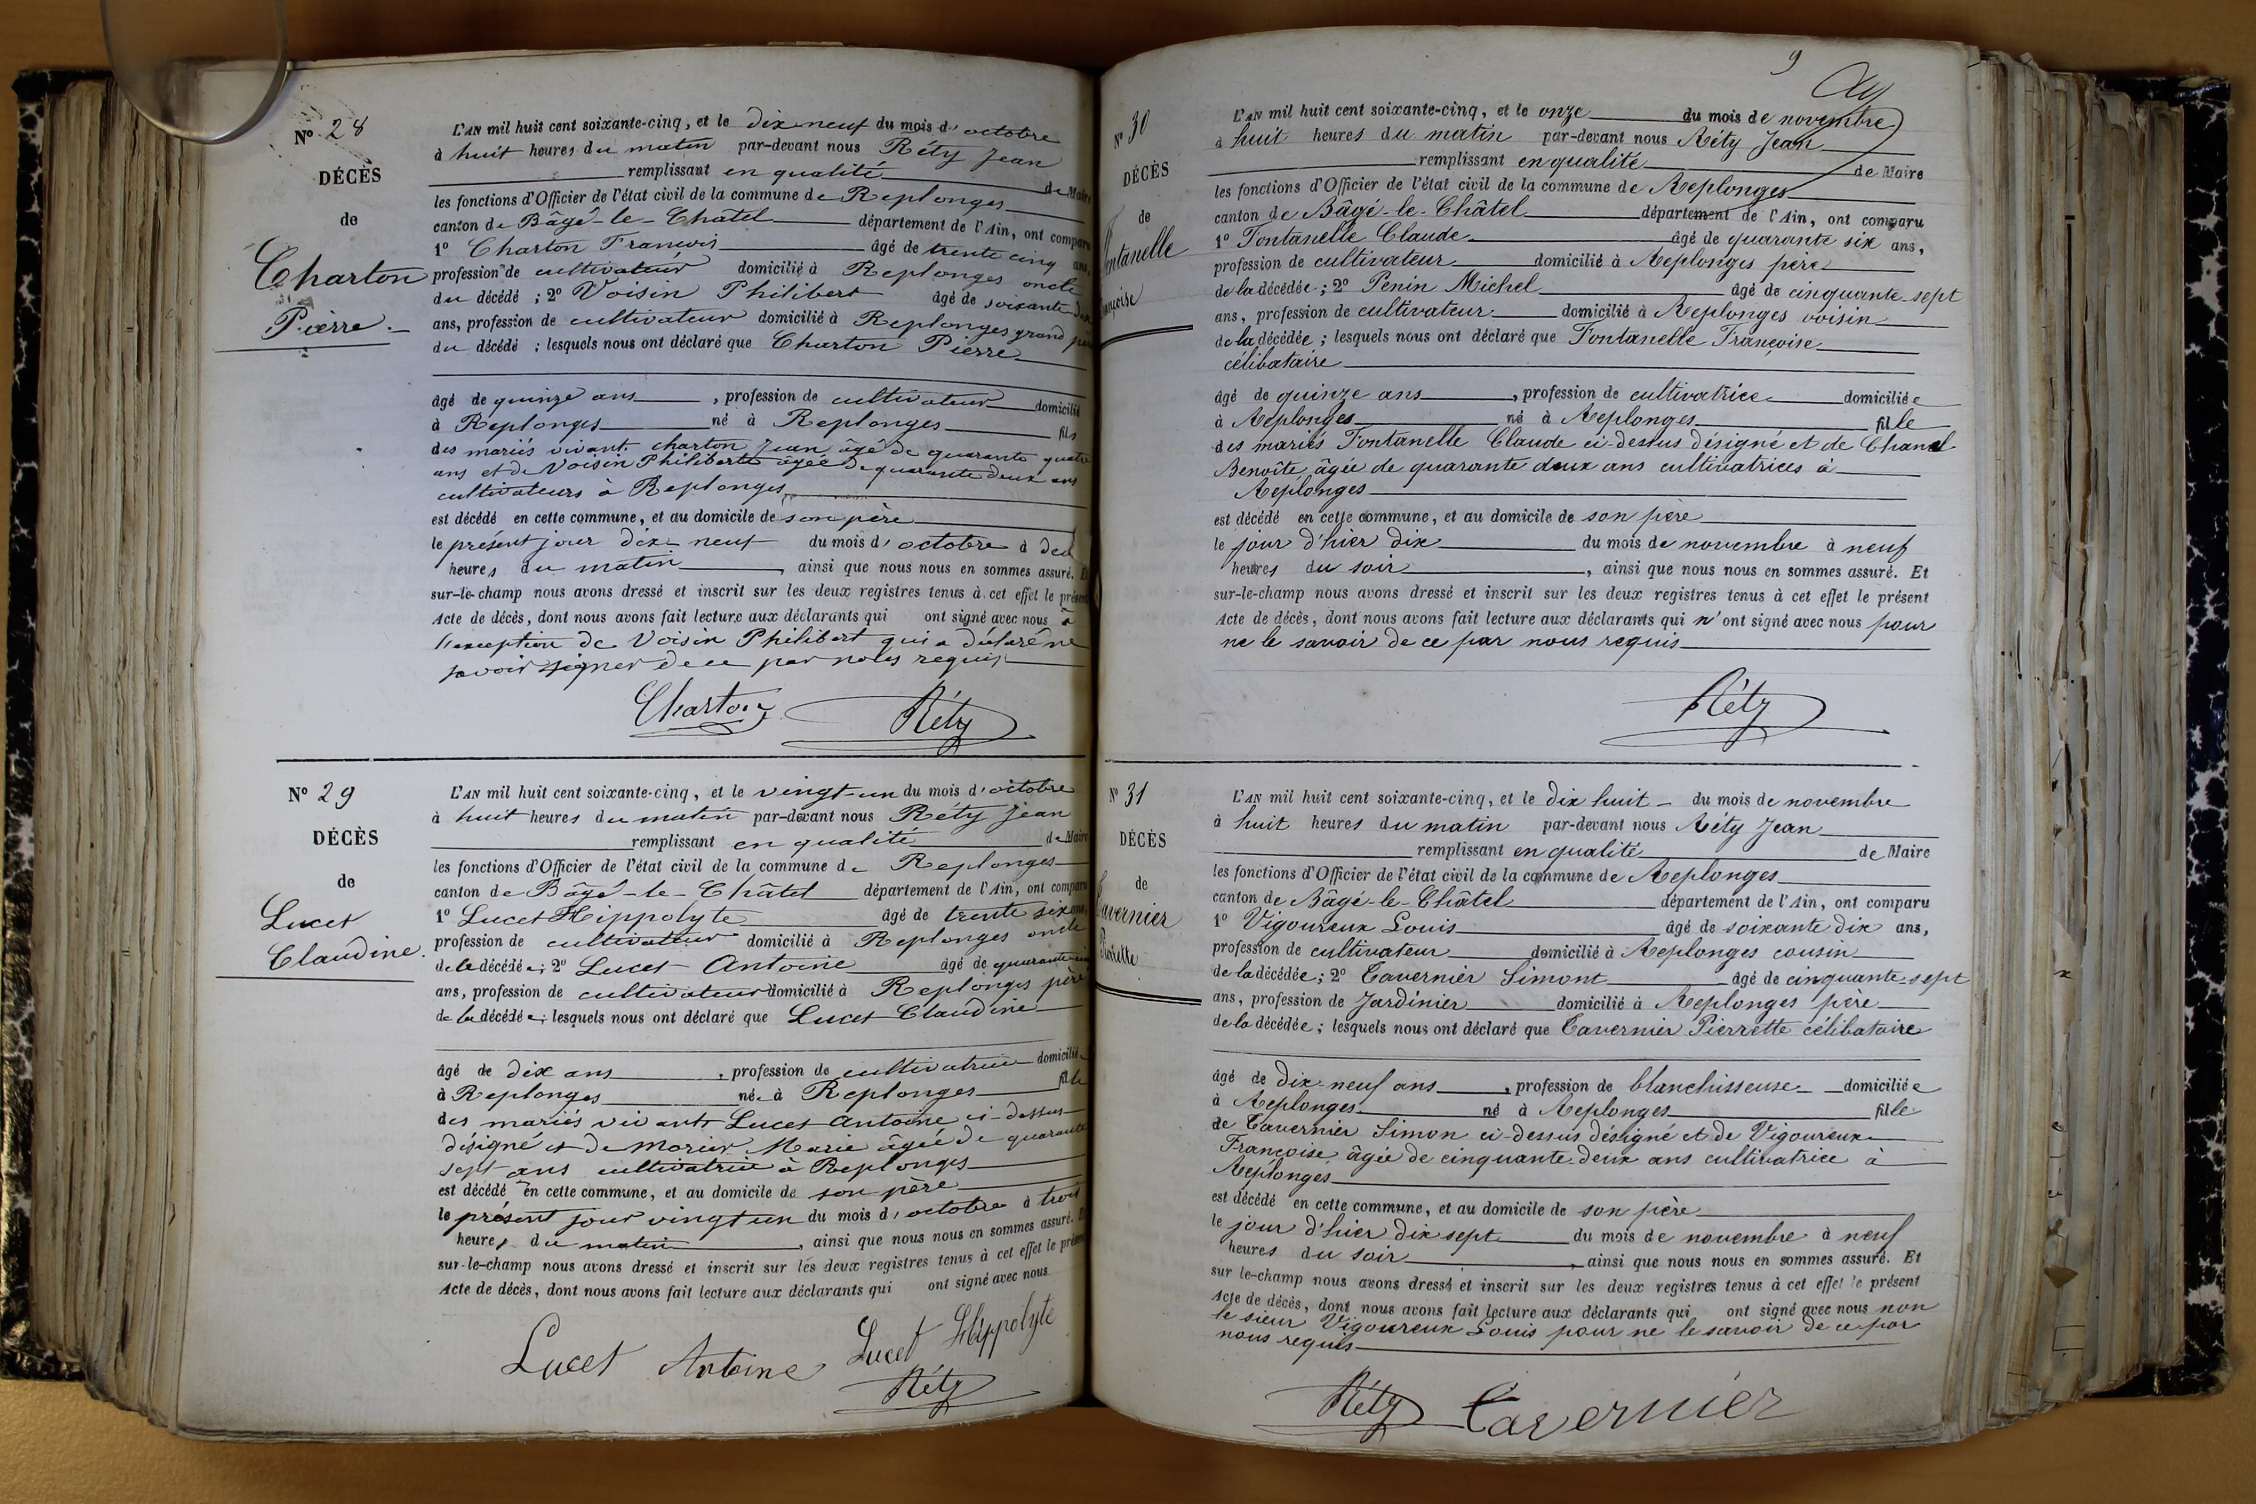 Nº 28
DÉCÈS
de
Charton
Pierre
L'AN mil huit cent soixante-cinq, et le dix neuf du mois d'octobre
à huit heures du matin par-devant nous Réty Jean
remplissant en qualité de Maire
les fonctions d'Officier de l'état civil de la commune de Replonges
canton de Bâgé-le-Chatel département de l'Ain, ont comparu
1º Charton Francois âgé de trente cinq ans,
profession de cultivateur domicilié à Replonges oncle
du décédé ; 2º Voisin Philibert âgé de soixante
ans, profession de cultivateur domicilié à Replonges grand
du décédé ; lesquels nous ont déclaré que Charton Pierre
âgé de quinze ans, profession de cultivateur domicilié
à Replonges né à Replonges fils
des mariés vivant charton Jean âgé de quarante quatre
ans et de Voisin Philiberte âgée de quarante deux ans
cultivateurs à Replonges
est décédé en cette commune, et au domicile de son père
le présent jour dix neuf du mois d'octobre à deux
heures du matin, ainsi que nous nous en sommes assuré. Et
sur-le-champ nous avons dressé et inscrit sur les deux registres tenus à cet effet le présent
Acte de décès, dont nous avons fait lecture aux déclarants qui ont signé avec nous à
l'exception de Voisin Philibert qui a déclaré ne
savoir signer de ce par nous requis
Charton Réty
Nº 29
DÉCÈS
de
Lucet
Claudine.
L'AN mil huit cent soixante-cinq, et le vingt-un du mois d'octobre
à huit heures du matin par-devant nous Réty Jean
remplissant en qualité de Maire
les fonctions d'Officier de l'état civil de la commune de Replonges
canton de Bâgé-le-Châtel département de l'Ain, ont comparu
1º Lucet Hippolyte âgé de trente six ans,
profession de cultivateur domicilié à Replonges oncle
de la décédée ; 2º Lucet Antoine âgé de quarante
ans, profession de cultivateur domicilié à Replonges père
de la décédée ; lesquels nous ont déclaré que Lucet Claudine
âgé de dix ans, profession de cultivatrice domiciliée
à Replonges née à Replonges fille
des mariés vivants Lucet Antoine ci-dessus
désigné et de Morier Marie âgée de quarante
sept ans cultivatrice à Replonges
est décédé en cette commune, et au domicile de son père
le présent jour vingt un du mois d'octobre à trois
heures du matin, ainsi que nous nous en sommes assuré. Et
sur-le-champ nous avons dressé et inscrit sur les deux registres tenus à cet effet le présent
Acte de décès, dont nous avons fait lecture aux déclarants qui ont signé avec nous
Lucet Antoine Lucet Hippolyte
Réty
9
Nº 30
DÉCÈS
de
Fontanelle
Françoise
L'AN mil huit cent soixante-cinq, et le onze du mois de novembre
à huit heures du matin par-devant nous Réty Jean
remplissant en qualité de Maire
les fonctions d'Officier de l'état civil de la commune de Replonges
canton de Bâgé-le-Châtel département de l'Ain, ont comparu
1º Fontanelle Claude âgé de quarante six ans,
profession de cultivateur domicilié à Replonges père
de la décédée ; 2º Penin Michel âgé de cinquante-sept
ans, profession de cultivateur domicilié à Replonges voisin
de la décédée ; lesquels nous ont déclaré que Fontanelle Françoise
célibataire
âgé de quinze ans, profession de cultivatrice domiciliée
à Replonges né à Replonges fille
des mariés Fontanelle Claude ci-dessus désigné et de Chanel
Benoîte âgée de quarante deux ans cultivatrices à
Replonges
est décédé en cette commune, et au domicile de son père
le jour d'hier dix du mois de novembre à neuf
heures du soir, ainsi que nous nous en sommes assuré. Et
sur-le-champ nous avons dressé et inscrit sur les deux registres tenus à cet effet le présent
Acte de décès, dont nous avons fait lecture aux déclarants qui n'ont signé avec nous pour
ne le savoir de ce par nous requis
Réty
Nº 31
DÉCÈS
de
Tavernier
Pierrette
L'AN mil huit cent soixante-cinq, et le dix huit du mois de novembre
à huit heures du matin par-devant nous Réty Jean
remplissant en qualité de Maire
les fonctions d'Officier de l'état civil de la commune de Replonges
canton de Bâgé-le-Châtel département de l'Ain, ont comparu
1º Vigoureux Louis âgé de soixante dix ans,
profession de cultivateur domicilié à Replonges cousin
de la décédée ; 2º Tavernier Simont âgé de cinquante-sept
ans, profession de Jardinier domicilié à Replonges père
de la décédée ; lesquels nous ont déclaré que Tavernier Pierrette célibataire
âgé de dix-neuf ans, profession de blanchisseuse domiciliée
à Replonges né à Replonges fille
de Tavernier Simon ci-dessus désigné et de Vigoureux
Françoise âgée de cinquante deux ans cultivatrice à
Replonges
est décédé en cette commune, et au domicile de son père
le jour d'hier dix sept du mois de novembre à neuf
heures du soir, ainsi que nous nous en sommes assuré. Et
sur le-champ nous avons dressé et inscrit sur les deux registres tenus à cet effet le présent
Acte de décès, dont nous avons fait lecture aux déclarants qui ont signé avec nous non
le sieur Vigoureux Louis pour ne le savoir de ce par
nous requis
Réty Tavernier